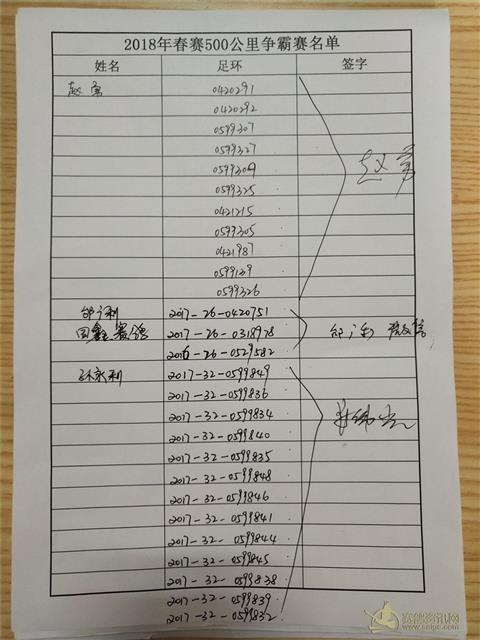 2018年春赛500公里争霸赛名单
姓名 足环 签字
赵勇 0420291
0420292
0599307
0599327
0599309
0599325
0421215
0599305
0421987
0599129
0599326
赵勇
邰广利 2017-26-0420751
国鑫赛鸽 2017-26-0318978
2016-26-0529582
邰广利
孙永利 2017-32-0599849
2017-32-0599836
2017-32-0599834
2017-32-0599840
2017-32-0599835
2017-32-0599848
2017-32-0599846
2017-32-0599841
2017-32-0599844
2017-32-0599845
2017-32-0599838
2017-32-0599839
2017-32-0599832
赛鸽资讯网
www.saige.com